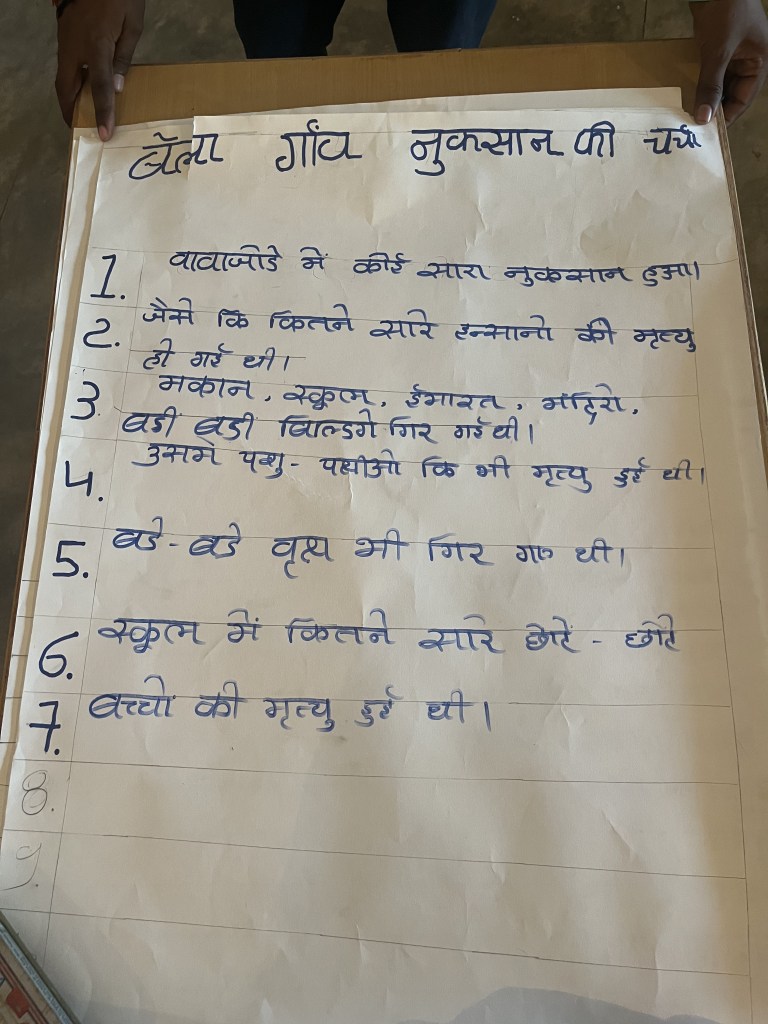 बेला गाँव नुकसान की चर्चा
1. वावाजोडे में कोई सारा नुकसान हुआ।
2. जैसे कि कितने सारे इन्सानो की मृत्यु
हो गई थी।
3. मकान, स्कूल, ईमारत, मंदिरो,
बडी बडी बिल्डिंगे गिर गई थी।
4. उसमे पशु - पक्षीओ कि भी मृत्यु हुई थी।
5. बडे - बडे वृक्ष भी गिर गए थी।
6. स्कूल में कितने सारे छोटे - छोटे
7. बच्चो की मृत्यु हुई थी।
8.
9.